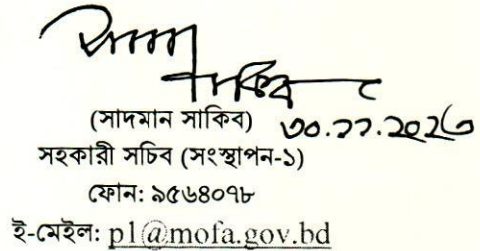 সাদমান
সাকিব
(সাদমান সাকিব) ৩০.১১.২০২৩
সহকারী সচিব (সংস্থাপন-১)
ফোন: ৯৫৬৪০৭৮
ই-মেইল: p1@mofa.gov.bd